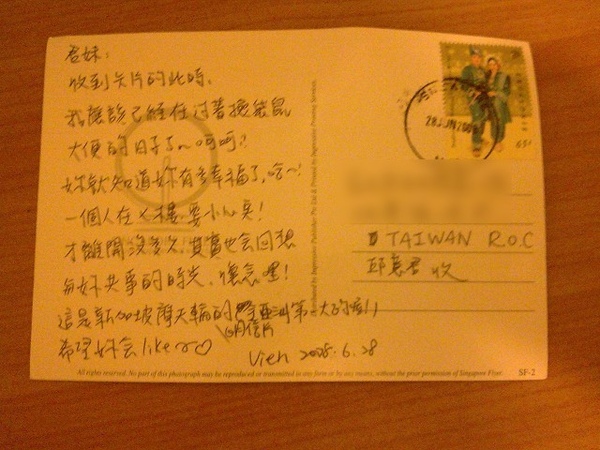 君妹:
收到卡片的此時,
我應該已經在過著撿袋鼠
大便的日子了~呵呵?
妳就知道妳有多幸福了,哈~!
一個人在 樓要小心臭!
才離開沒多久,其實也會回想
與妳共事的時光,懷念喔!
這是新加坡摩天輪的明信片 亞洲第一大的喔!!
希望妳會like ♡
Vien 2008.6.28
28 JUN 200
65¢
TAIWAN R.O.C
邱 君 收
Published by Impressive Publisher Pte Ltd & Printed by Impressive Printing Services.
All rights reserved. No part of this photograph may be reproduced or transmitted in any form or by any means, without the prior permission of Singapore Flyer.
SF-2